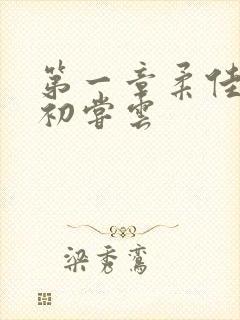 第一章柔佳
初尝云
梁秀鸾